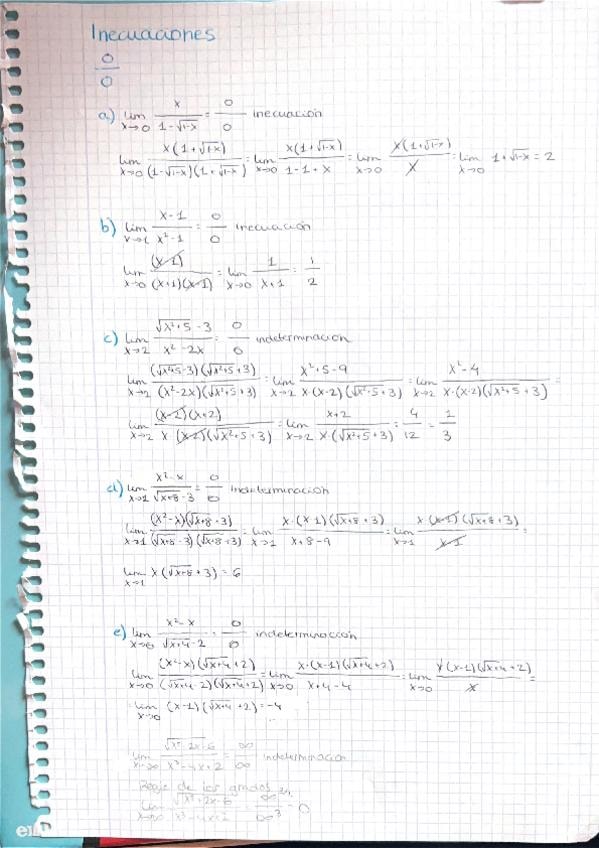 Inecuaciones
0/0
a) lim x→0 x/(1-√1-x) = 0/0 inecuación
lim x→0 x(1+√1-x)/((1-√1-x)(1+√1-x)) = lim x→0 x(1+√1-x)/(1-1+x) = lim x→0 x(1+√1-x)/x = lim x→0 1+√1-x = 2
b) lim x→1 (x-1)/(x²-1) = 0/0 inecuación
lim x→0 (x-1)/((x+1)(x-1)) = lim x→0 1/(x+1) = 1/2
c) lim x→2 (√x²+5 -3)/(x²-2x) = 0/0 indeterminación
lim x→2 (√x²+5-3)(√x²+5+3)/((x²-2x)(√x²+5+3)) = lim x→2 (x²+5-9)/(x·(x-2)(√x²+5+3)) = lim x→2 (x²-4)/(x·(x-2)(√x²+5+3)) =
lim x→2 (x-2)(x+2)/(x·(x-2)(√x²+5+3)) = lim x→2 (x+2)/(x·(√x²+5+3)) = 4/12 = 1/3
d) lim x→1 (x²-x)/(√x+8-3) = 0/0 indeterminación
lim x→1 (x²-x)(√x+8+3)/((√x+8-3)(√x+8+3)) = lim x→1 x·(x-1)(√x+8+3)/(x+8-9) = lim x→1 x(x-1)(√x+8+3)/(x-1) =
lim x→1 x(√x+8+3) = 6
e) lim x→0 (x²-x)/(√x+4-2) = 0/0 indeterminación
lim x→0 (x²-x)(√x+4+2)/((√x+4-2)(√x+4+2)) = lim x→0 x·(x-1)(√x+4+2)/(x+4-4) = lim x→0 x(x-1)(√x+4+2)/x =
= lim x→0 (x-1)(√x+4+2) = -4
indeterminación
Regla de los grados